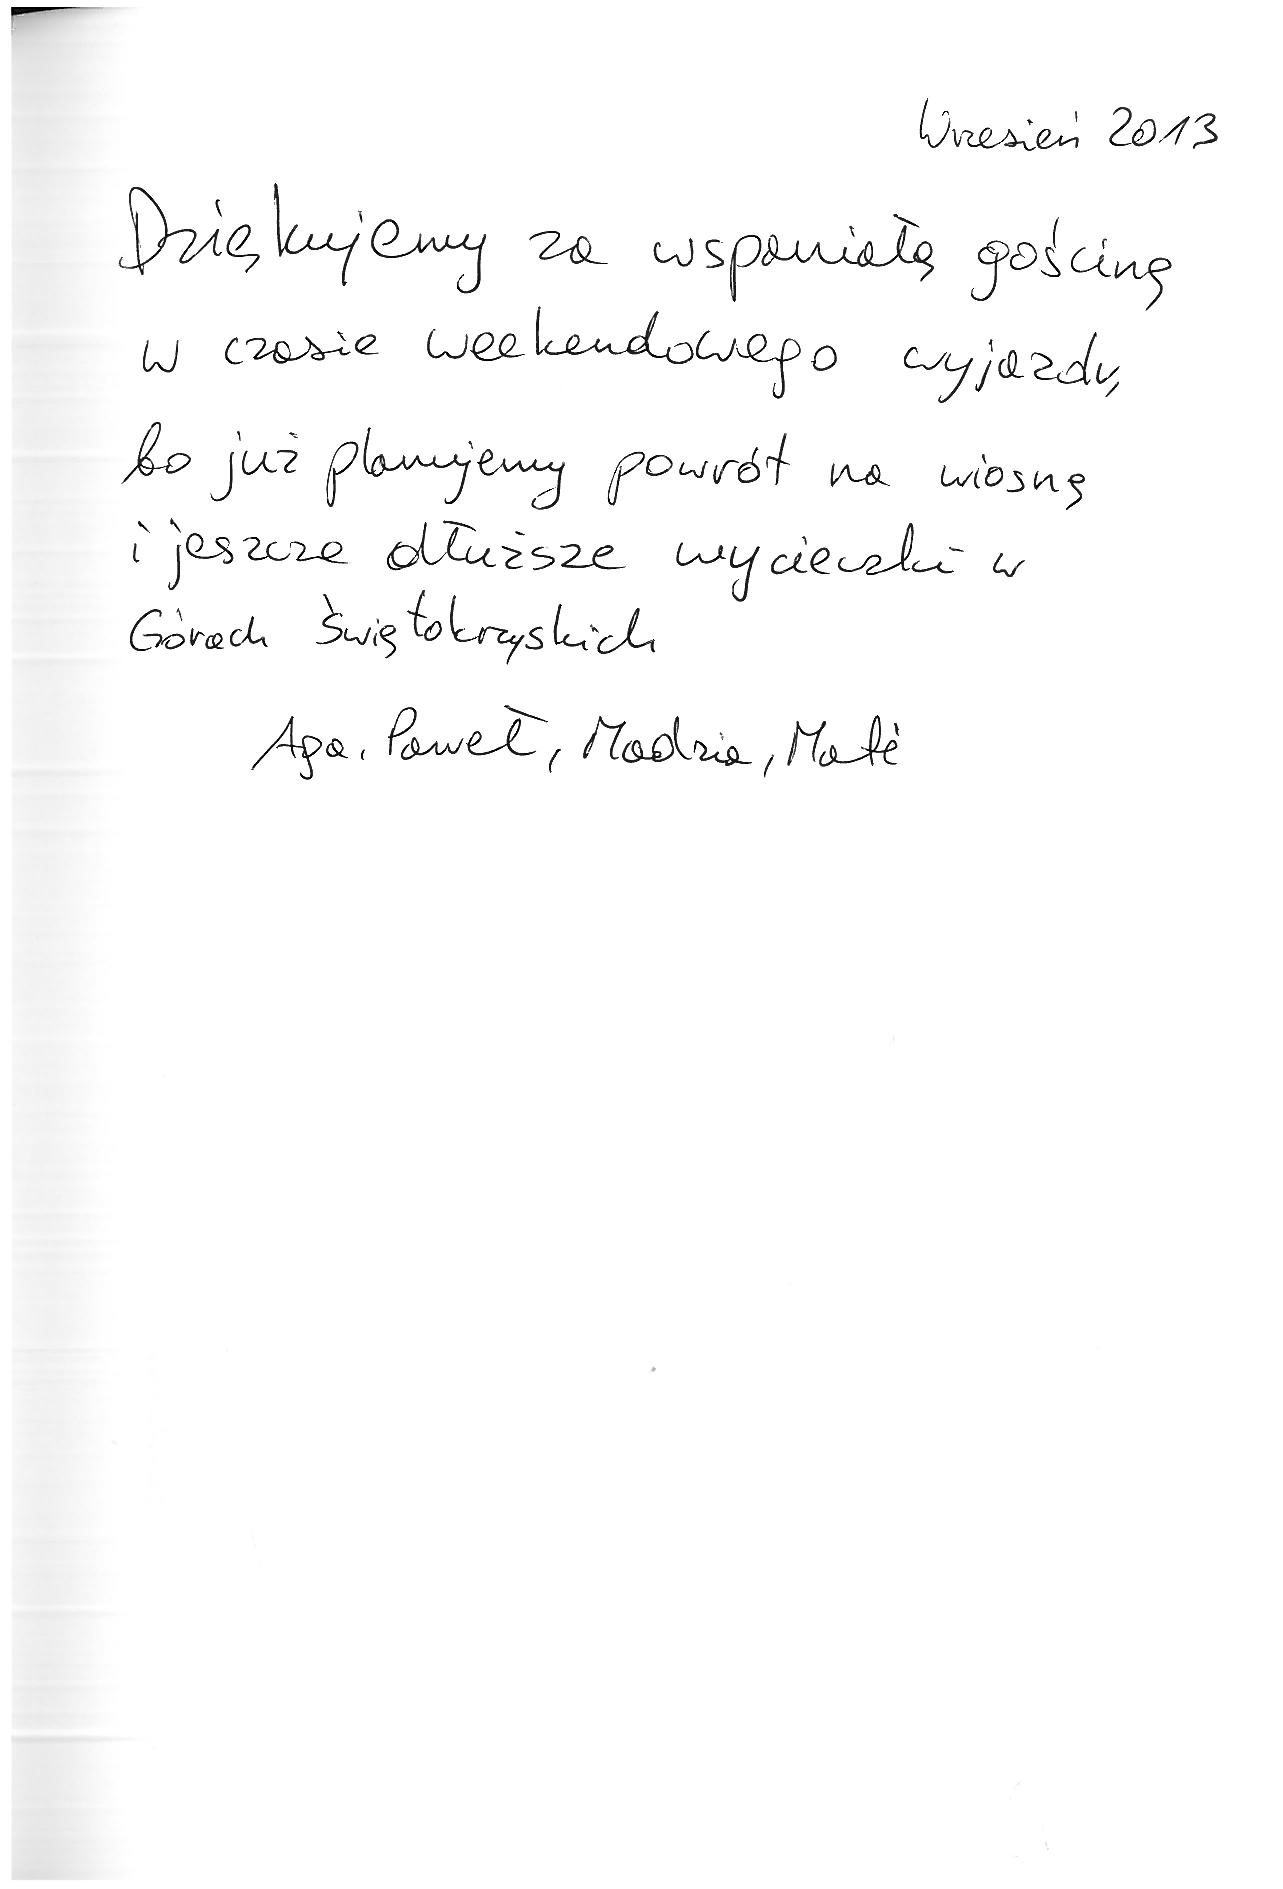 Wrzesień 2013
Dziękujemy za wspaniałą gościnę
w czasie weekendowego wyjazdu,
bo już planujemy powrót na wiosnę
i jeszcze dłuższe wycieczki w
Górach Świętokrzyskich
Aga, Paweł, Madzia,